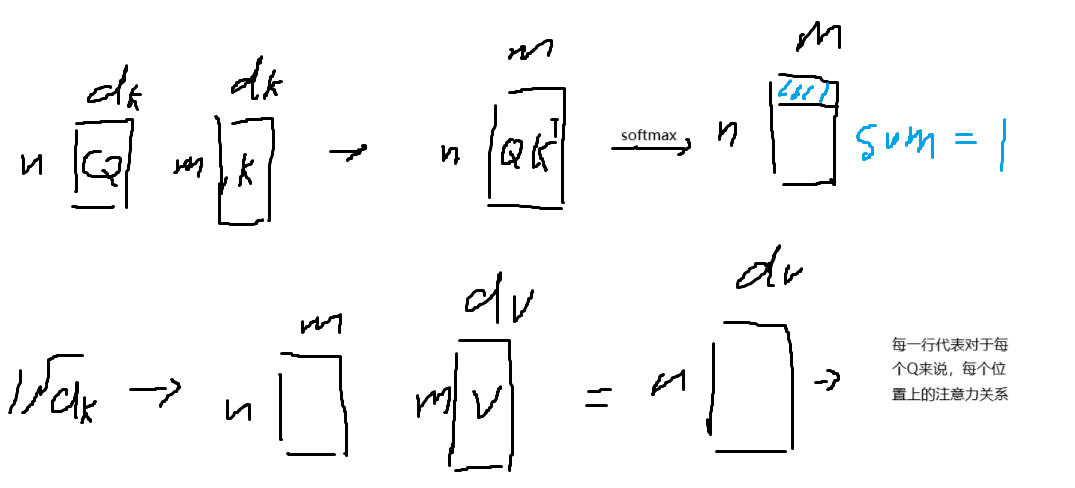 dk dk m M
n Q m k → n QK^T softmax → n sum = 1
m dv dv
1/√dk → n m V = n → 每一行代表对于每
个Q来说，每个位
置上的注意力关系